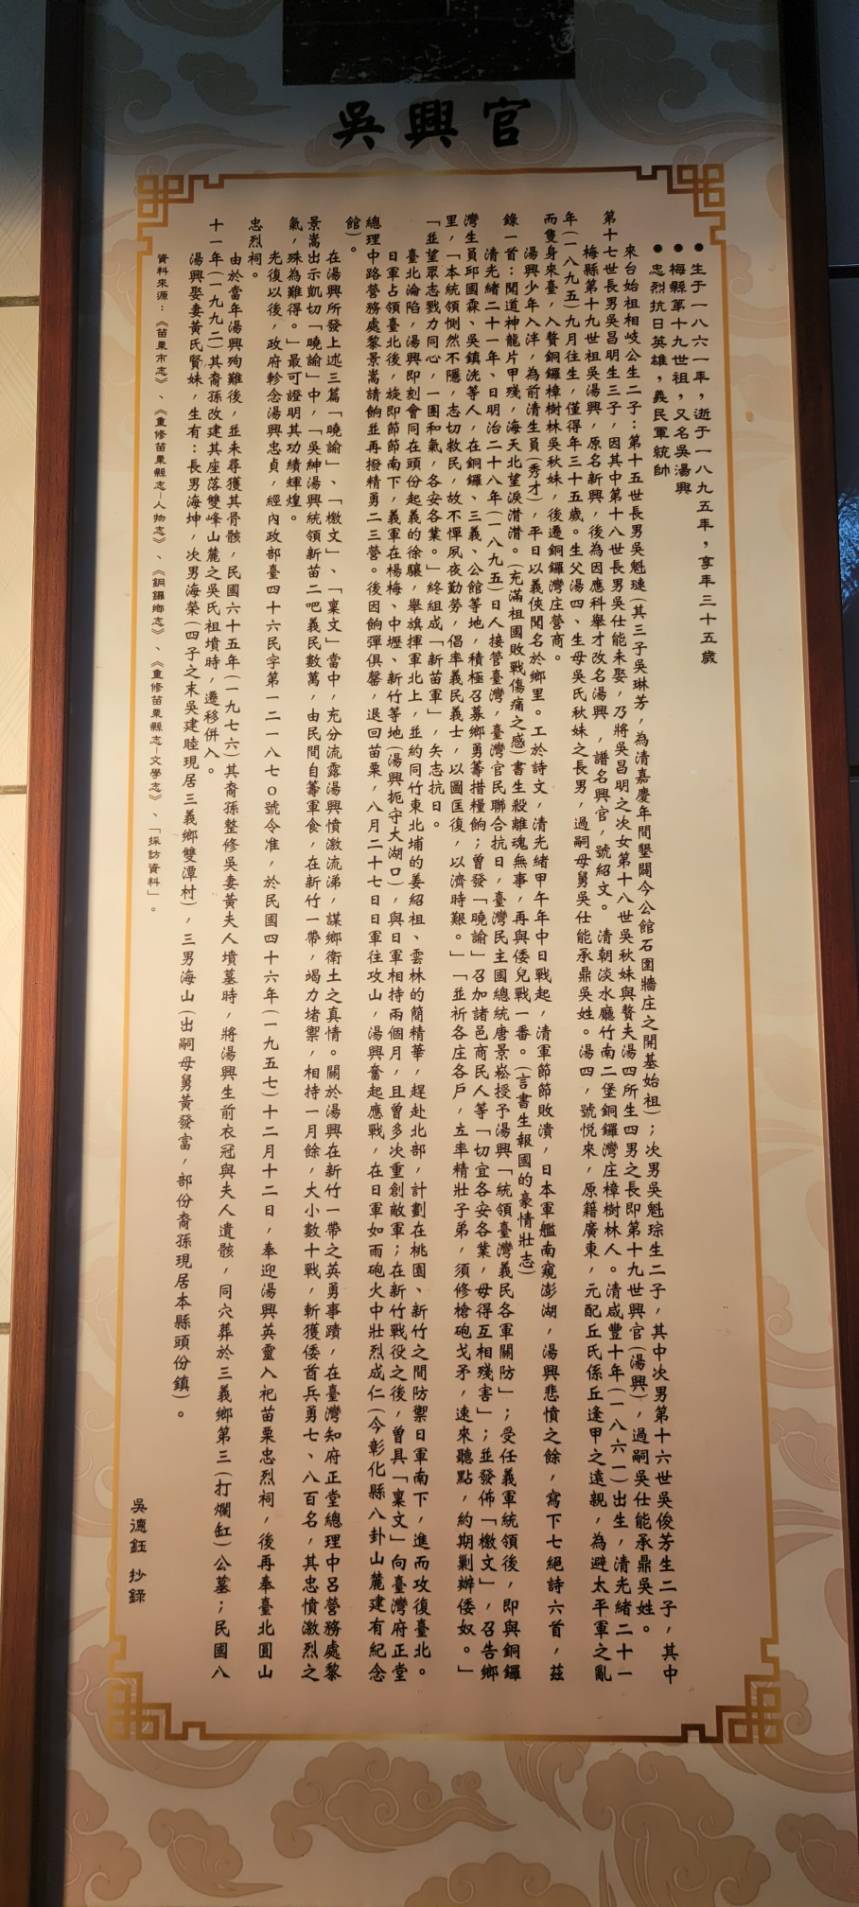 吳興官
●生于一八六一年，逝于一八九五年，享年三十五歲
●梅縣第十九世祖，又名吳湯興
●忠烈抗日英雄，義民軍統帥
來台始祖相岐公生二子：第十五世長男吳魁璉(其三子吳琳芳，為清嘉慶年間墾闢今公館石圍牆庄之開基始祖)；次男吳魁琮生二子，其中次男第十六世吳俊芳生二子，其中
第十七世長男吳昌明生三子，因其中第十八世長男吳仕能未娶，乃將吳昌明之次女第十八世吳秋妹與贅夫湯四所生四男之長即第十九世興官(湯興)，過嗣吳仕能承鼎吳姓。
梅縣第十九世祖吳湯興，原名新興，後為因應科舉才改名湯興，譜名興官，號紹文。清朝淡水廳竹南二堡銅鑼灣庄樟樹林人。清咸豐十年(一八六一)出生，清光緒二十一
年(一八九五)九月往生，僅得年三十五歲。生父湯四、生母吳氏秋妹之長男，過嗣母舅吳仕能承鼎吳姓。湯四，號悦來，原籍廣東，元配丘氏係丘逢甲之遠親，為避太平軍之亂
而隻身來臺，入贅銅鑼樟樹林吳秋妹，後遷銅鑼灣庄營商。
湯興少年入泮，為前清生員(秀才)，平日以義俠聞名於鄉里。工於詩文，清光緒甲午年中日戰起，清軍節節敗潰，日本軍艦南窺澎湖，湯興悲憤之餘，寫下七絕詩六首，茲
錄一首：聞道神龍片甲殘，海天北望淚潸潸。(充滿祖國敗戰傷痛之感)書生殺離魂無事，再與倭兒戰一番。(言書生報國的豪情壯志)
清光緒二十一年、日明治二十八年(一八九五)日人接管臺灣，臺灣官民聯合抗日，臺灣民主國總統唐景崧授予湯興「統領臺灣義民各軍關防」；受任義軍統領後，即與銅鑼
灣生員邱國霖、吳鎮洸等人，在銅鑼、三義、公館等地，積極召募鄉勇籌措糧餉；曾發「曉諭」召加諸邑商民人等「切宜各安各業，毋得互相殘害」；並發佈「檄文」，召告鄉
里，「本統領惻然不隱，志切救民，故不憚夙夜勤勞，倡率義民義士，以圖匡復，以濟時艱。」「並祈各庄各戶，立率精壯子弟，須修槍砲戈矛，速來聽點，約期剿辦倭奴。」
「並望眾志戰力同心，一團和氣，各安各業。」終組成「新苗軍」，矢志抗日。
臺北淪陷，湯興即刻會同在頭份起義的徐驤，舉旗揮軍北上，並約同竹東北埔的姜紹祖、雲林的簡精華，趕赴北部，計劃在桃園、新竹之間防禦日軍南下，進而攻復臺北。
日軍占領臺北後，旋即節節南下，義軍在楊梅、中壢、新竹等地(湯興扼守大湖口)，與日軍相持兩個月，且曾多次重創敵軍；在新竹戰役之後，曾具「稟文」向臺灣府正堂
總理中路營務處黎景嵩請餉並再撥精勇二三營。後因餉彈俱罄，退回苗栗，八月二十七日日軍往攻山，湯興奮起應戰，在日軍如雨砲火中壯烈成仁(今彰化縣八卦山麓建有紀念
館)。
在湯興所發上述三篇「曉諭」、「檄文」、「稟文」當中，充分流露湯興憤激流涕，謀鄉衛土之真情。關於湯興在新竹一帶之英勇事蹟，在臺灣知府正堂總理中呂營務處黎
景嵩出示凱切「曉諭」中，「吳紳湯興統領新苗二吧義民數萬，由民間自籌軍食，在新竹一帶，竭力堵禦，相持一月餘，大小數十戰，斬獲倭首兵勇七、八百名，其忠憤激烈之
氣，殊為難得。」最可證明其功績輝煌。
光復以後，政府軫念湯興忠貞，經內政部臺四十六民字第一二一八七○號令准，於民國四十六年(一九五七)十二月十二日，奉迎湯興英靈入祀苗栗忠烈祠，後再奉臺北圓山
忠烈祠。
由於當年湯興殉難後，並未尋獲其骨骸，民國六十五年(一九七六)其裔孫整修吳妻黃夫人墳墓時，將湯興生前衣冠與夫人遺骸，同穴葬於三義鄉第三(打爛缸)公墓；民國八
十一年(一九九二)其裔孫改建其座落雙峰山麓之吳氏祖墳時，遷移併入。
湯興娶妻黃氏賢妹，生有：長男海坤，次男海榮(四子之末吳建睦現居三義鄉雙潭村)，三男海山(出嗣母舅黃發富，部份裔孫現居本縣頭份鎮)。
資料來源：《苗栗市志》、《重修苗栗縣志─人物志》、《銅鑼鄉志》、《重修苗栗縣志─文學志》、「採訪資料」。
吳德鈺 抄錄